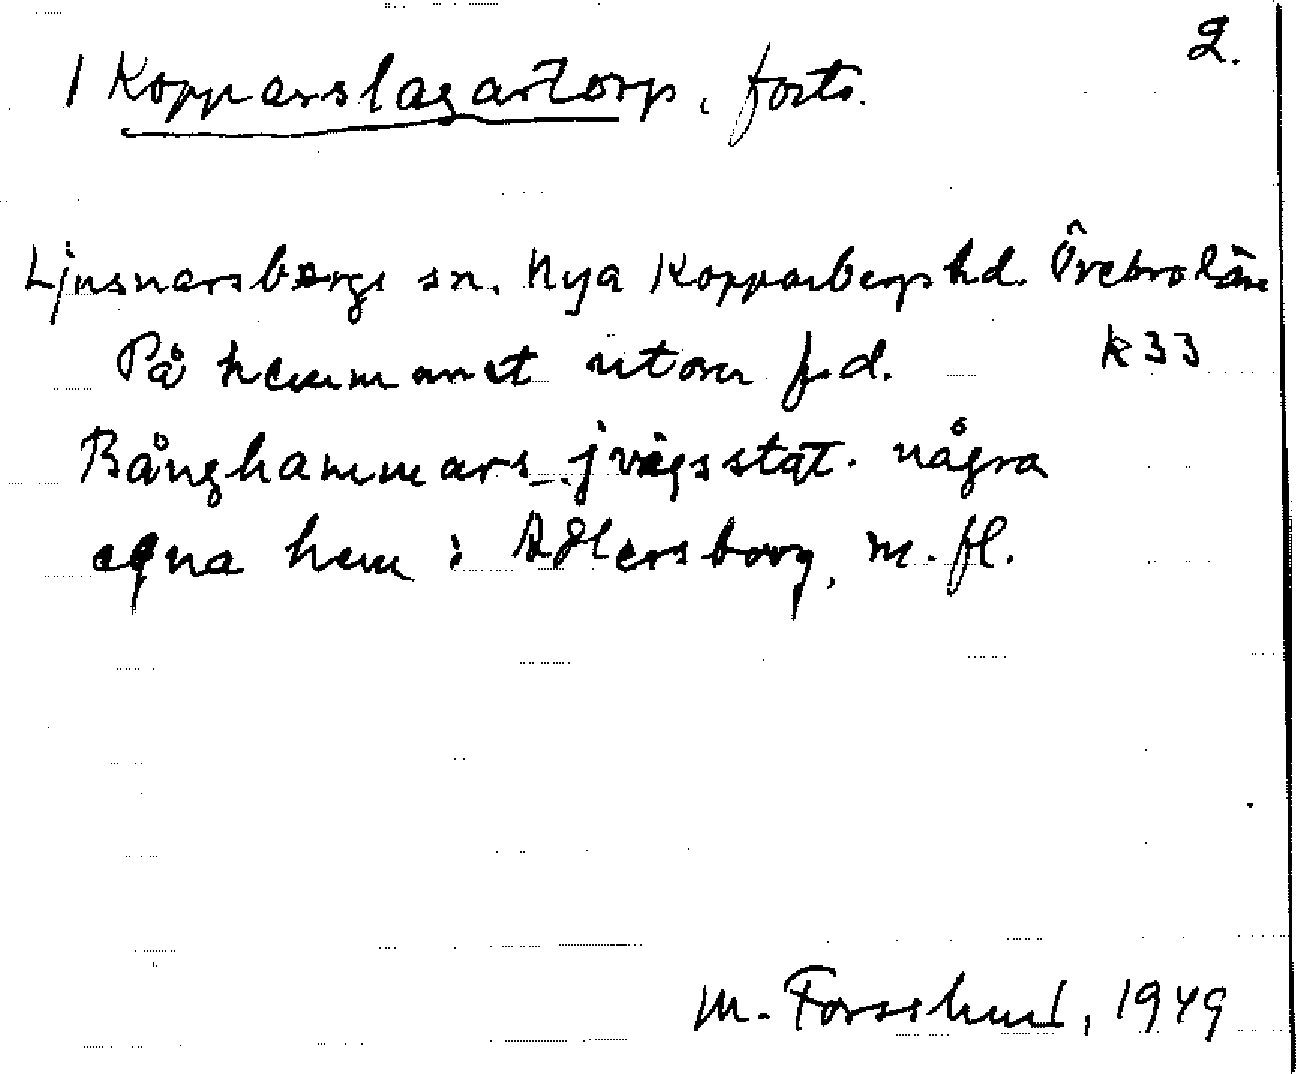 2.
1 Kopparslagartorp, forts.
Ljusnarsbergs sn. Nya Kopparbergs hd. Örebro län
På hemmanet utom f.d. K 33
Bånghammars jvägsstat. några
egna hem: Adlersborg, m. fl.
M. Forsslund, 1949